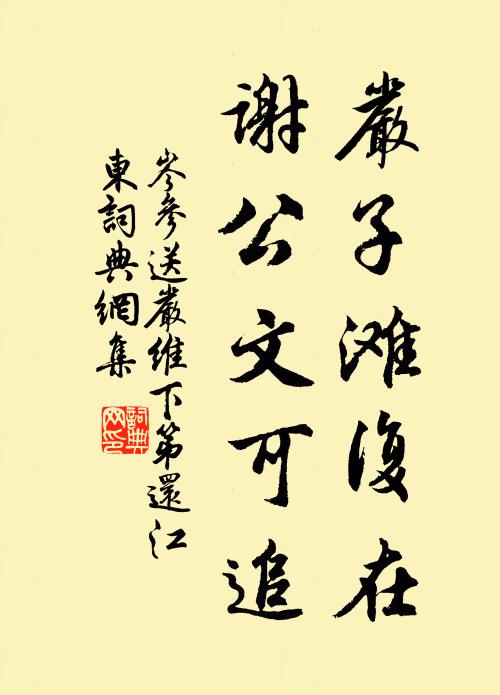 嚴子滩復在
谢公文可追
岑參送嚴維下第還江
東詞典網集
詞典
网印